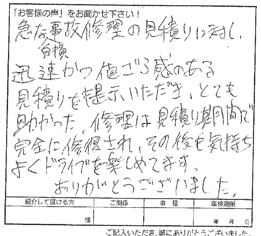 「お客様の声」をお聞かせ下さい！
急な事故修理の見積りに対し、
迅速かつ値ごろ感のある
見積りを提示いただき、とても
助かった。修理は見積り期間で
完全に修復され、その後も気持ち
よくドライブを楽しめてます。
ありがとうございました。
紹介して頂ける方 ご関係 車種 車検期限
様 年 月 日
ご記入いただき、誠にありがとうございました。